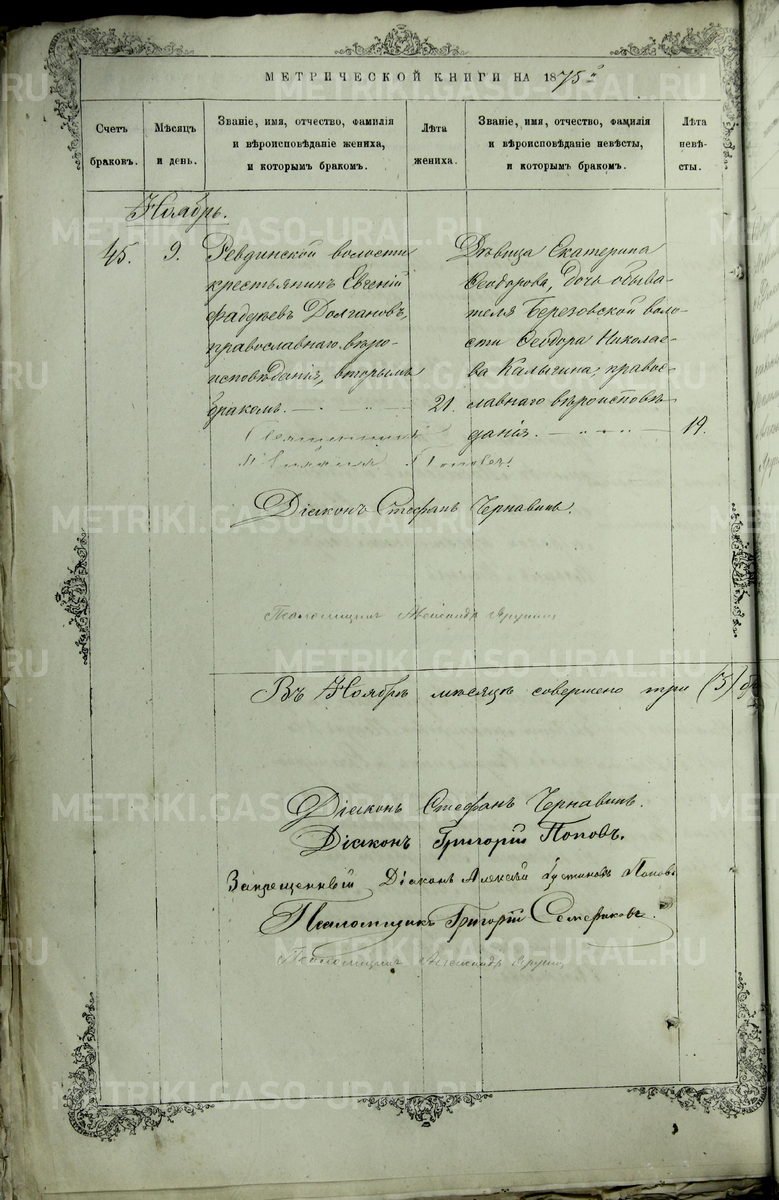 МЕТРИЧЕСКОЙ КНИГИ НА 1875 й
Счетъ браковъ.
Мѣсяцъ и день.
Званіе, имя, отчество, фамилія и вѣроисповѣданіе жениха, и которымъ бракомъ.
Лѣта жениха.
Званіе, имя, отчество, фамилія и вѣроисповѣданіе невѣсты, и которымъ бракомъ.
Лѣта невѣсты.
Ноябрь.
45.
9.
Ревдинской волости
крестьянинъ Евгеній
Фадѣевъ Долгановъ,
православнаго вѣро-
исповѣданія, вторымъ
бракомъ.
21.
Дѣвица Екатерина
Ѳеодорова, дочь обыва-
теля Березовской воло-
сти Ѳеодора Николае-
ва Калыгина, правос-
лавнаго вѣроисповѣ-
данія.
19.
Священникъ
Поповъ.
Діаконъ Стефанъ Чернавинъ.
Псаломщикъ Александръ
Въ Ноябрѣ мѣсяцѣ совершено три (3) бр
Діаконъ Стефанъ Чернавинъ.
Діаконъ Григорій Поповъ.
Запрещенный Діаконъ Алексѣй Іустиновъ Поповъ
Псаломщикъ Григорій Семериковъ.
Псаломщикъ Александръ
METRIKI.GASO-URAL.RU